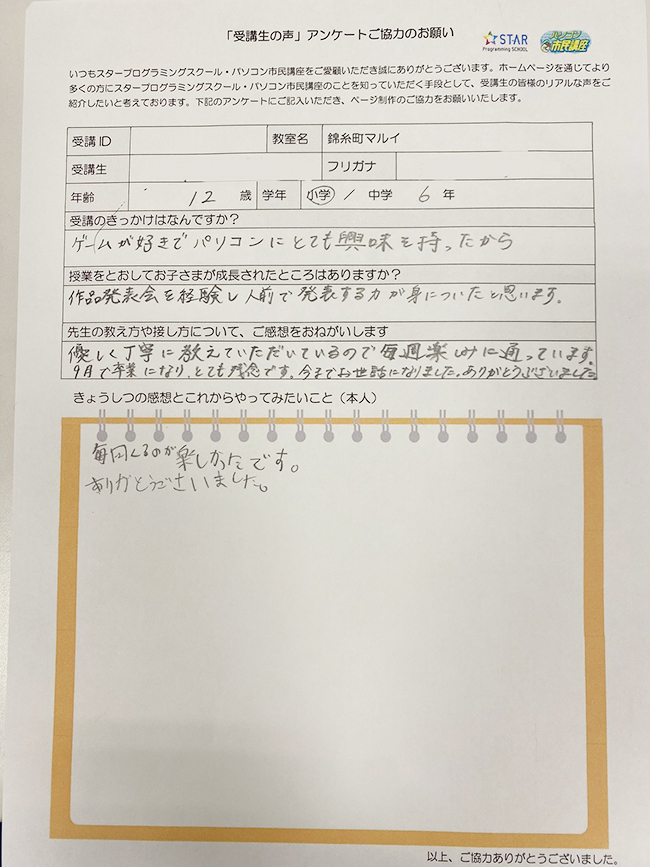 「受講生の声」アンケートご協力のお願い
STAR
Programming SCHOOL
パソコン
市民講座
いつもスタープログラミングスクール・パソコン市民講座をご愛顧いただき誠にありがとうございます。ホームページを通じてより
多くの方にスタープログラミングスクール・パソコン市民講座のことを知っていただく手段として、受講生の皆様のリアルな声をご
紹介したいと考えております。下記のアンケートにご記入いただき、ページ制作のご協力をお願いいたします。
受講ID 教室名 錦糸町マルイ
受講生 フリガナ
年齢 12 歳 学年 小学 / 中学 6 年
受講のきっかけはなんですか？
ゲームが好きでパソコンにとても興味を持ったから
授業をとおしてお子さまが成長されたところはありますか？
作品発表会を経験し人前で発表する力が身についたと思います。
先生の教え方や接し方について、ご感想をおねがいします
優しく丁寧に教えていただいているので毎週楽しみに通っています。
9月で卒業になり、とても残念です。今までお世話になりました。ありがとうございました
きょうしつの感想とこれからやってみたいこと（本人）
毎回くるのが楽しかったです。
ありがとうございました。
以上、ご協力ありがとうございました。